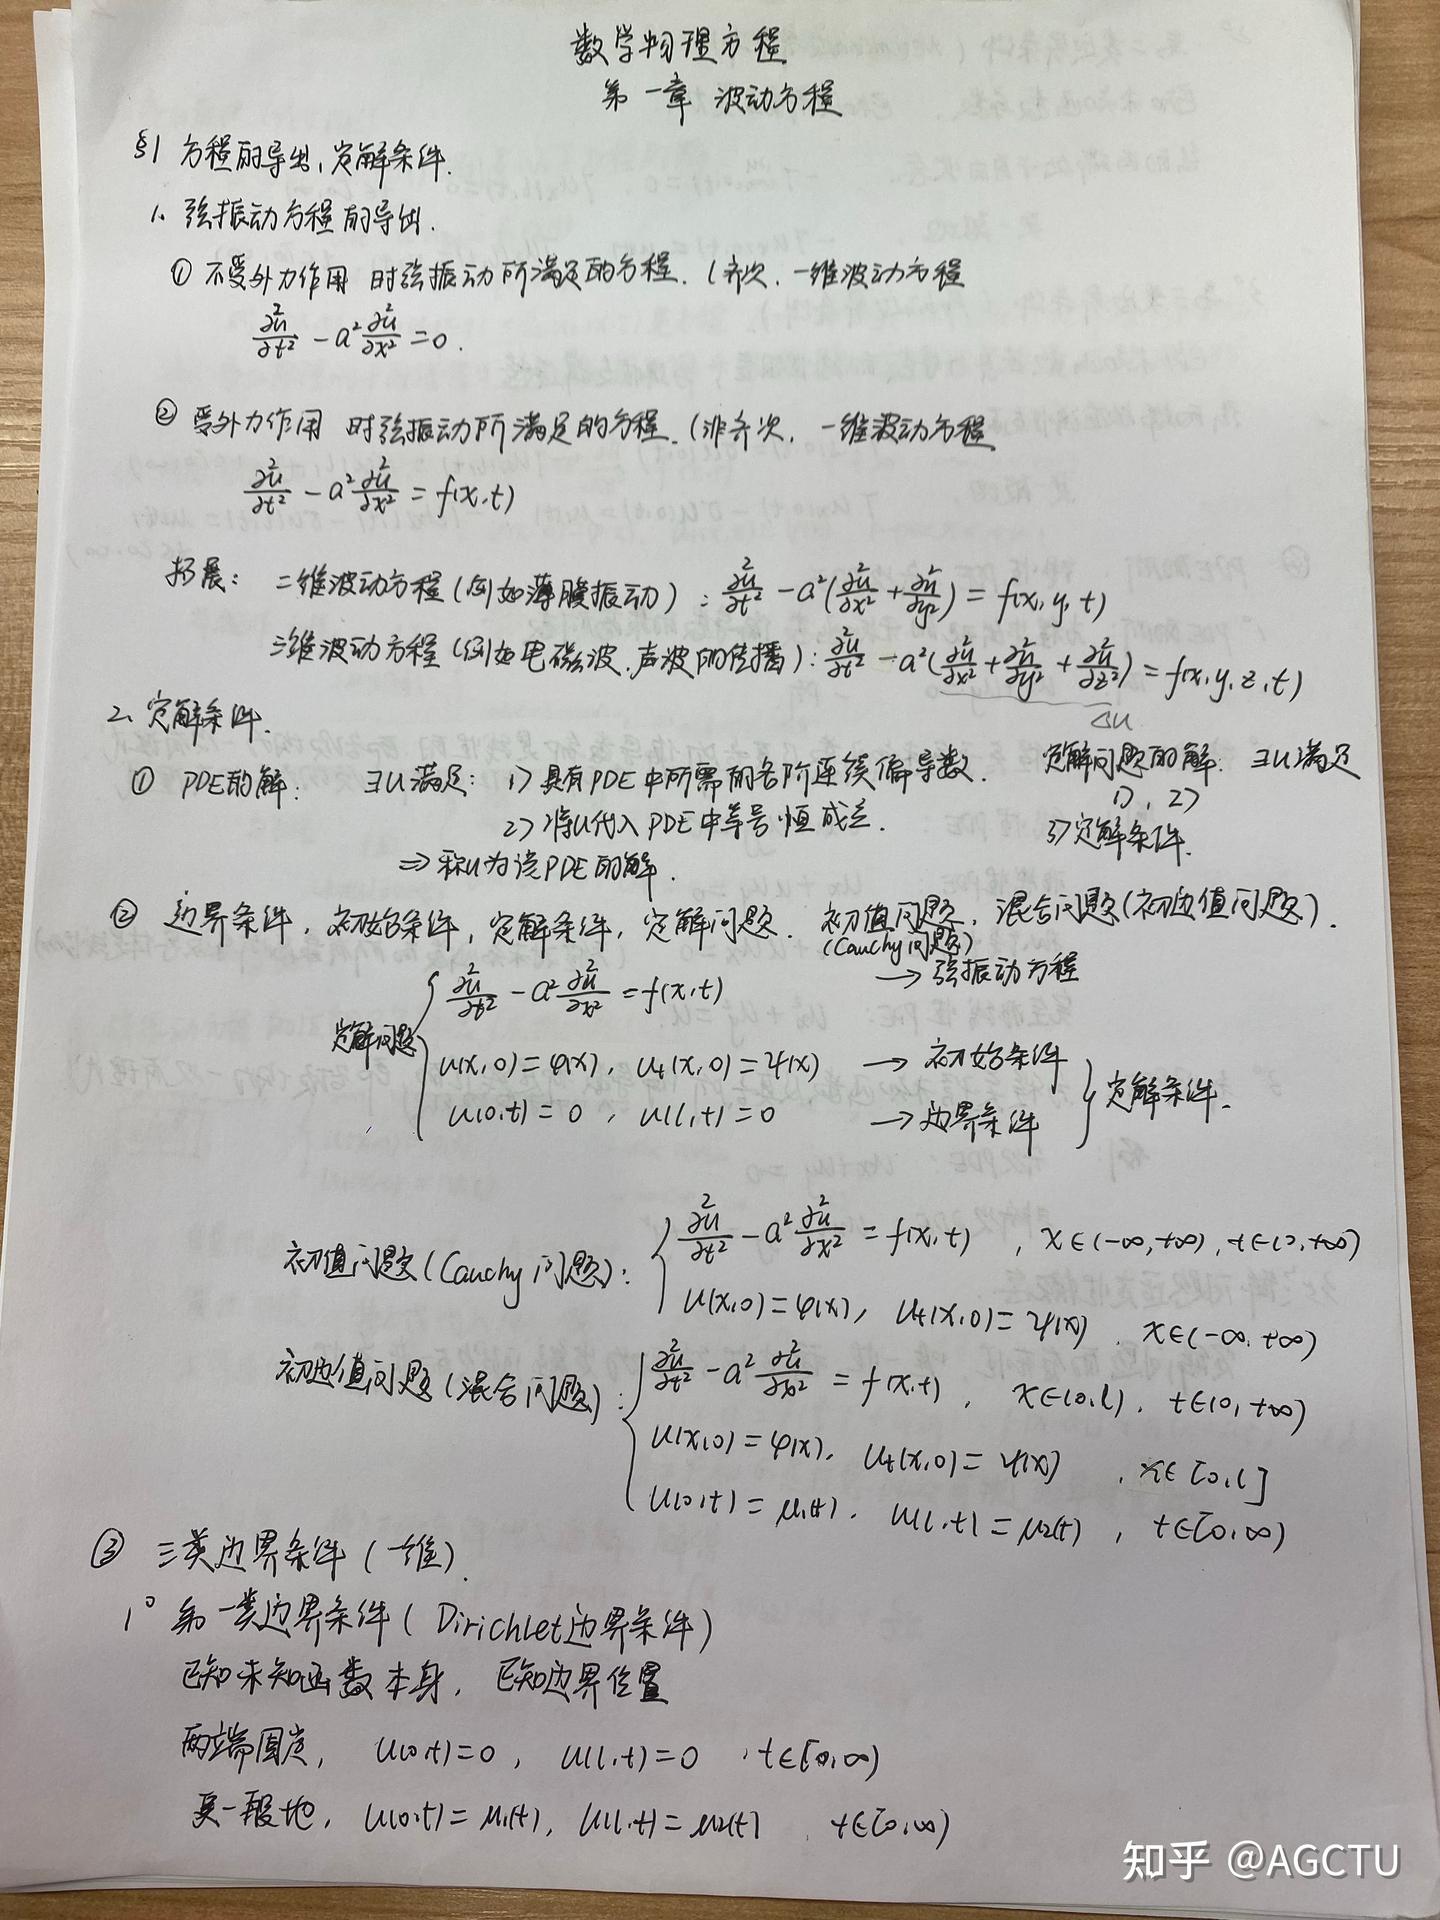 数学物理方程
第一章 波动方程
§1 方程的导出,定解条件.
1. 弦振动方程的导出.
① 不受外力作用 时弦振动所满足的方程.(齐次,一维波动方程
∂²u/∂t² - a² ∂²u/∂x² = 0.
② 受外力作用 时弦振动所满足的方程.(非齐次,一维波动方程
∂²u/∂t² - a² ∂²u/∂x² = f(x,t)
拓展: 二维波动方程(例如薄膜振动): ∂²u/∂t² - a²(∂²u/∂x² + ∂²u/∂y²) = f(x,y,t)
三维波动方程(例如电磁波,声波的传播): ∂²u/∂t² - a²(∂²u/∂x² + ∂²u/∂y² + ∂²u/∂z²) = f(x,y,z,t)
Δu
2. 定解条件.
① PDE的解: ∃u满足: 1) 具有PDE中所需的各阶连续偏导数. 定解问题的解: ∃u满足
1), 2)
2) 将u代入PDE中等号恒成立. 3) 定解条件.
⇒ 称u为该PDE的解.
② 边界条件,初始条件,定解条件,定解问题. 初值问题,混合问题(初边值问题).
(Cauchy问题)
定解问题 { ∂²u/∂t² - a² ∂²u/∂x² = f(x,t) → 弦振动方程
u(x,0)=φ(x), u_t(x,0)=ψ(x) → 初始条件
u(0,t)=0, u(l,t)=0 → 边界条件 } 定解条件.
初值问题(Cauchy问题): { ∂²u/∂t² - a² ∂²u/∂x² = f(x,t), x∈(-∞,+∞), t∈(0,+∞)
u(x,0)=φ(x), u_t(x,0)=ψ(x), x∈(-∞,+∞)
初边值问题(混合问题): { ∂²u/∂t² - a² ∂²u/∂x² = f(x,t), x∈(0,l), t∈(0,+∞)
u(x,0)=φ(x), u_t(x,0)=ψ(x), x∈[0,l]
u(0,t)=μ₁(t), u(l,t)=μ₂(t), t∈[0,∞)
③ 三类边界条件(一维).
1° 第一类边界条件(Dirichlet边界条件)
已知未知函数本身, 已知边界位置
两端固定, u(0,t)=0, u(l,t)=0, t∈[0,∞)
更一般地, u(0,t)=μ₁(t), u(l,t)=μ₂(t), t∈[0,∞)
知乎 @AGCTU